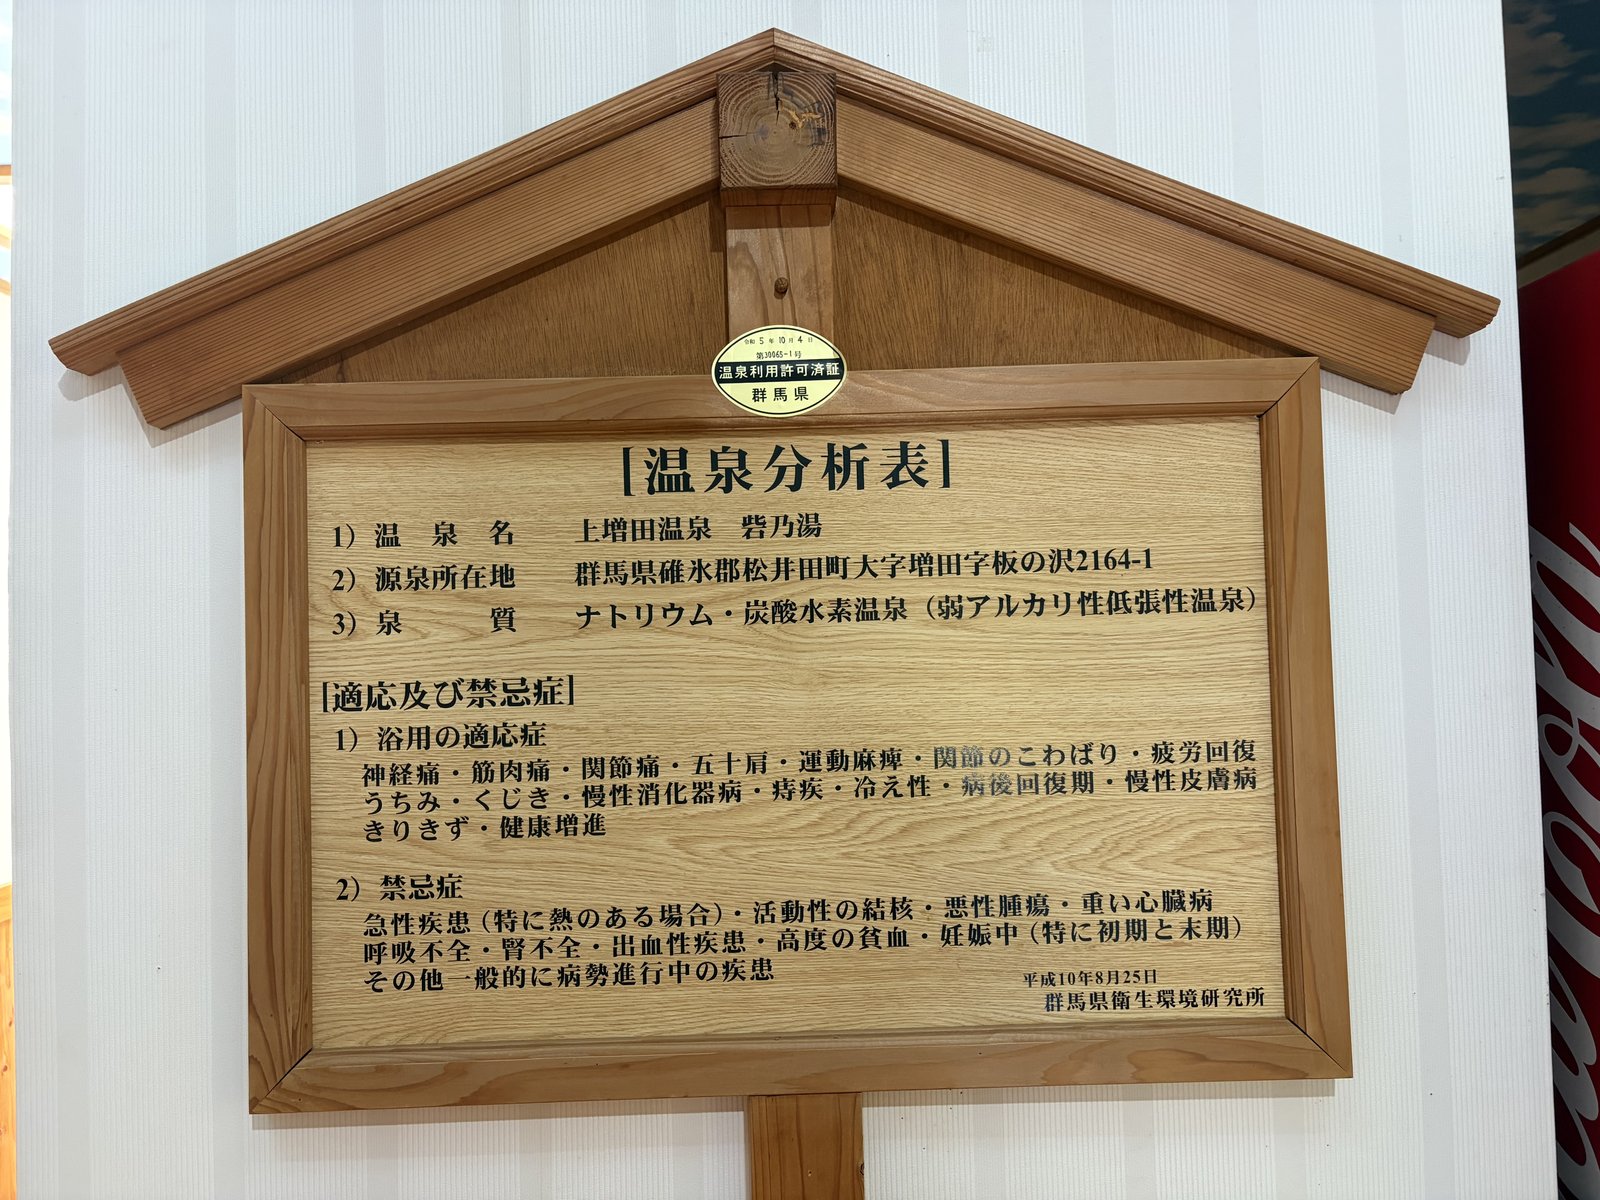 令和5年10月4日
第30065-1号
温泉利用許可済証
群馬県
[温泉分析表]
1) 温泉名 上増田温泉 砦乃湯
2) 源泉所在地 群馬県碓氷郡松井田町大字増田字板の沢2164-1
3) 泉質 ナトリウム・炭酸水素温泉（弱アルカリ性低張性温泉）
[適応及び禁忌症]
1) 浴用の適応症
神経痛・筋肉痛・関節痛・五十肩・運動麻痺・関節のこわばり・疲労回復
うちみ・くじき・慢性消化器病・痔疾・冷え性・病後回復期・慢性皮膚病
きりきず・健康増進
2) 禁忌症
急性疾患（特に熱のある場合）・活動性の結核・悪性腫瘍・重い心臓病
呼吸不全・腎不全・出血性疾患・高度の貧血・妊娠中（特に初期と末期）
その他一般的に病勢進行中の疾患
平成10年8月25日
群馬県衛生環境研究所